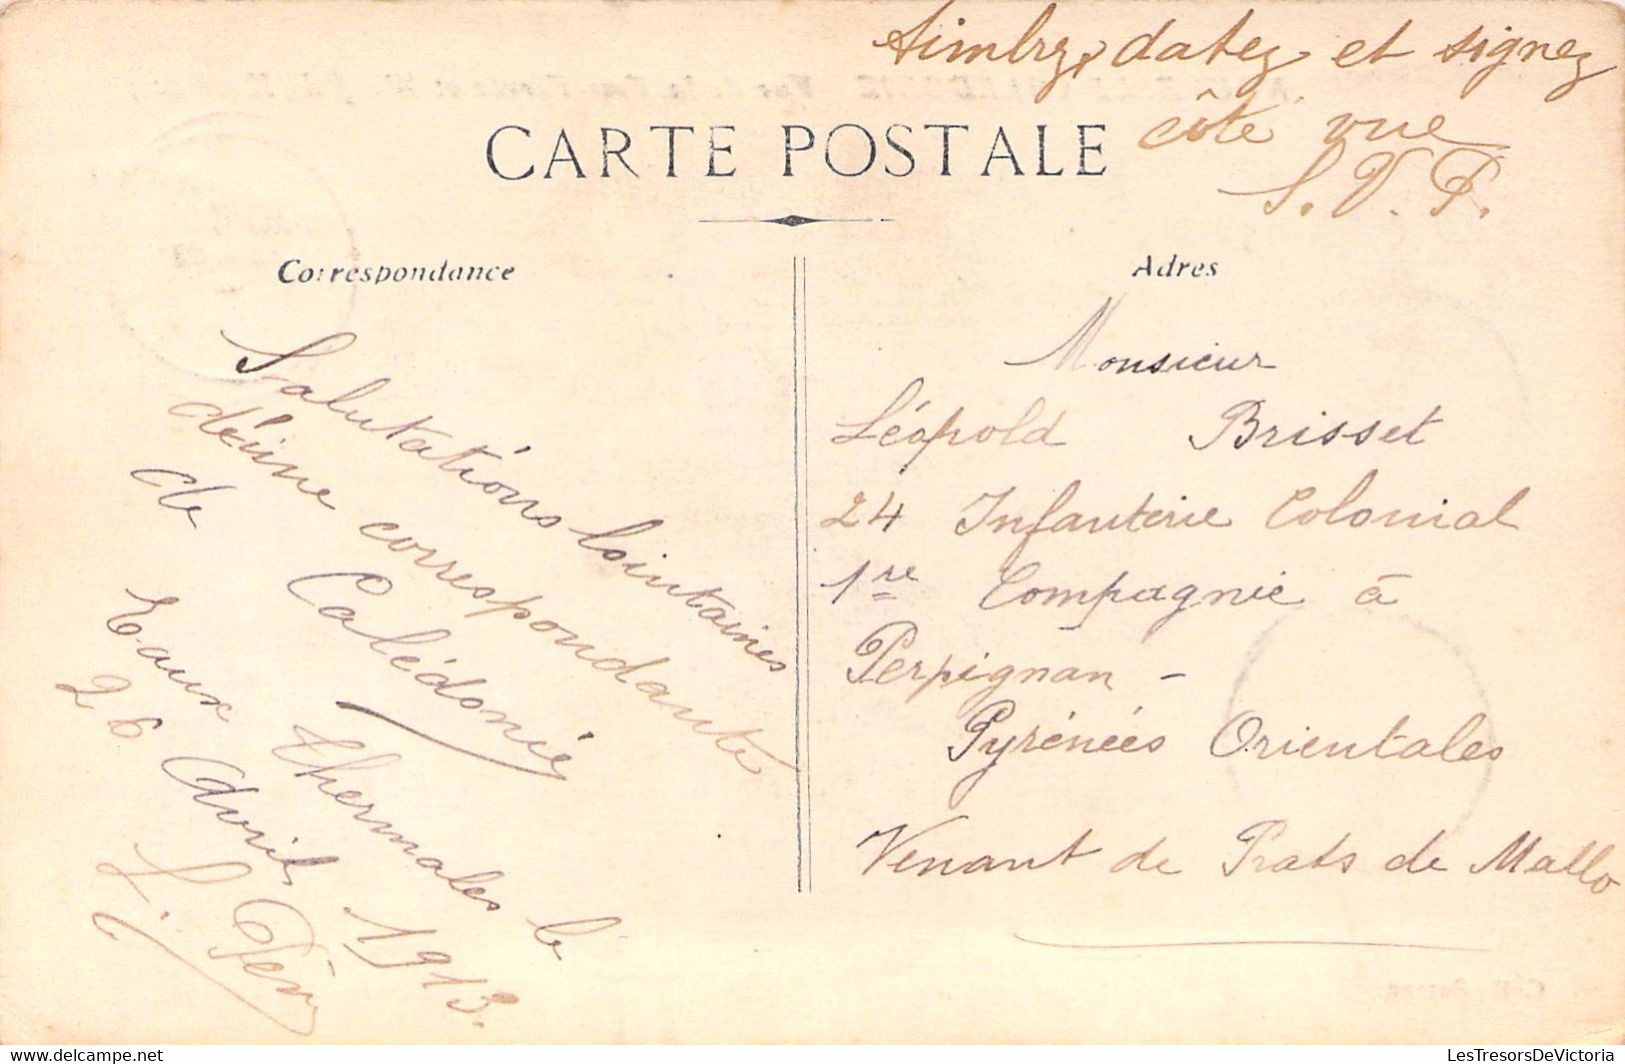 Timbrez, datez et signez
côté vue
S. V. P.
CARTE POSTALE
Correspondance
Salutations lointaines
d'une correspondante
de Calédonie
Eaux thermales le
26 Avril 1913.
Adres
Monsieur
Léopold Brisset
24 Infanterie Colonial
1re Compagnie à
Perpignan -
Pyrénées Orientales
Venant de Prats de Mallo
LesTresorsDeVictoria
delcampe.net